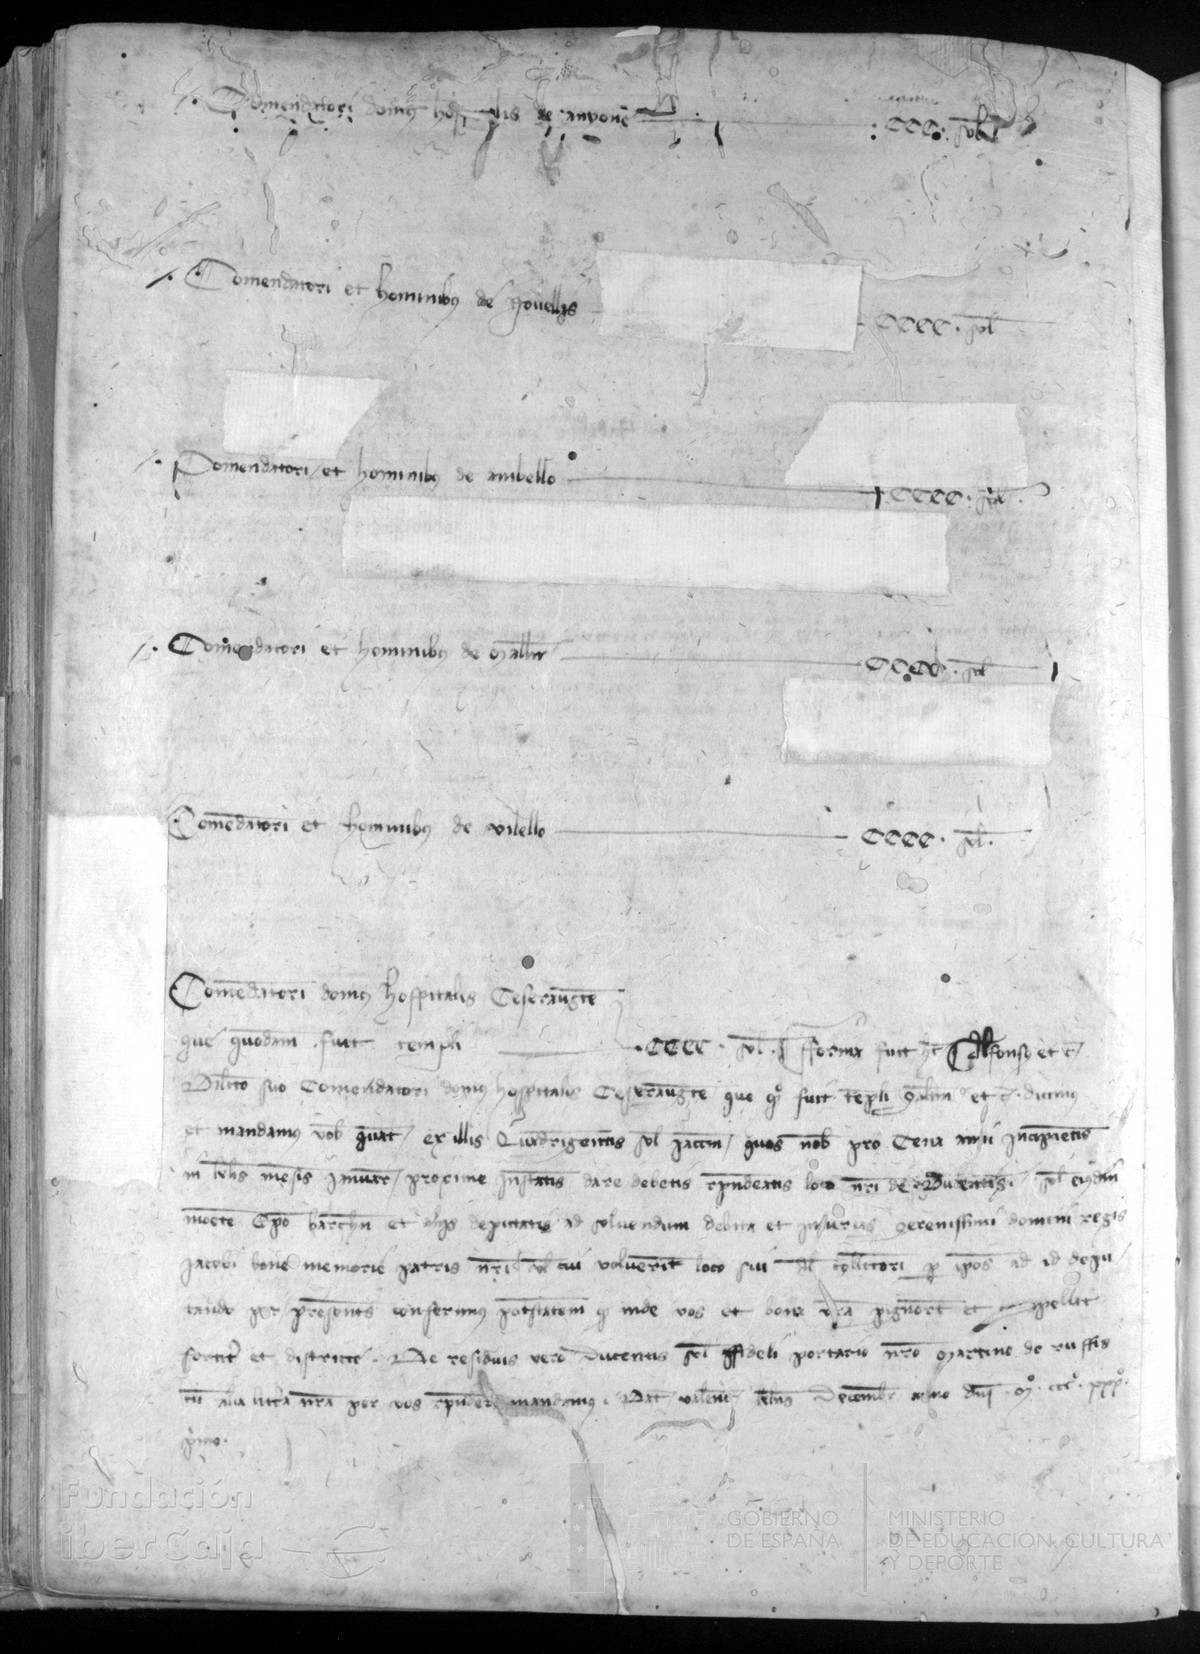 Comendatori domus hospitalis de anyone CCC sol
Comendatori et hominibus de Novellis CCCC sol
Comendatori et hominibus de ambello CCCC sol
Comendatori et hominibus de mallen CCCC sol
Comendatori et hominibus de vilello CCCC sol
Comendatori domus hospitalis Cesarauguste
que quondam fuit templi CCCC sol fforma fuit hec Alfonsus et c
Dilecto suo Comendatori domus hospitalis Cesarauguste que fuit templi salutem et c dicimus
et mandamus vobis quatenus ex illis Quadrigentis sol jaccensium quos nobis pro Cena anni incipientis
in mensis januarii proxime instantis dare debetis respondeatis loco nostri de Ducentis sol
Epo barchn et aliis deputatis ad solvendum debita et injurias serenissimi domini regis
jacobi bone memorie patris nostri vel cui voluerint loco sui collectori per ipsos ad id depu
tando per presentes conferimus potestatem inde vos et bona vestra pignoret et compellat
fortiter et districte De residuis vero Ducentis sol fideli portario nostro martino de ruffis
alia litera nostra per vos responderi mandamus Dat valencie Decembr anno dni Mo CCCo XXXo
primo
Fundación
iberCaja
GOBIERNO
DE ESPAÑA
MINISTERIO
DE EDUCACIÓN, CULTURA
Y DEPORTE